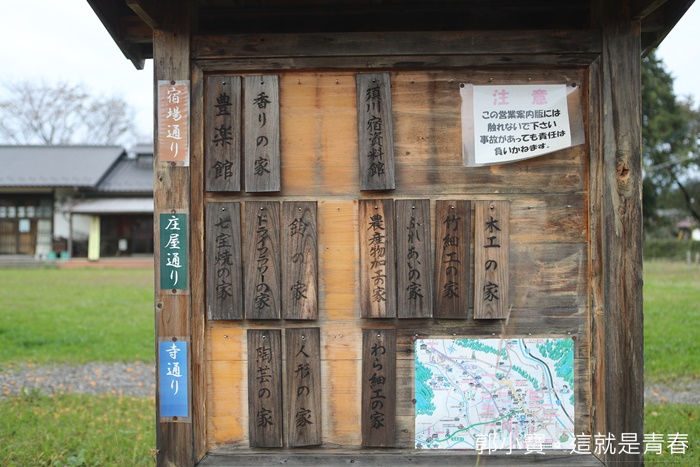 宿場通り
豊楽館
香りの家
須川宿資料館
注意
この営業案内版には
触れないで下さい
事故があっても責任は
負いかねます。
庄屋通り
七宝焼の家
ドライフラワーの家
鈴の家
農産物加工の家
ふれあいの家
竹細工の家
木工の家
寺通り
陶芸の家
人形の家
わら細工の家
郭小寶 - 這就是青春